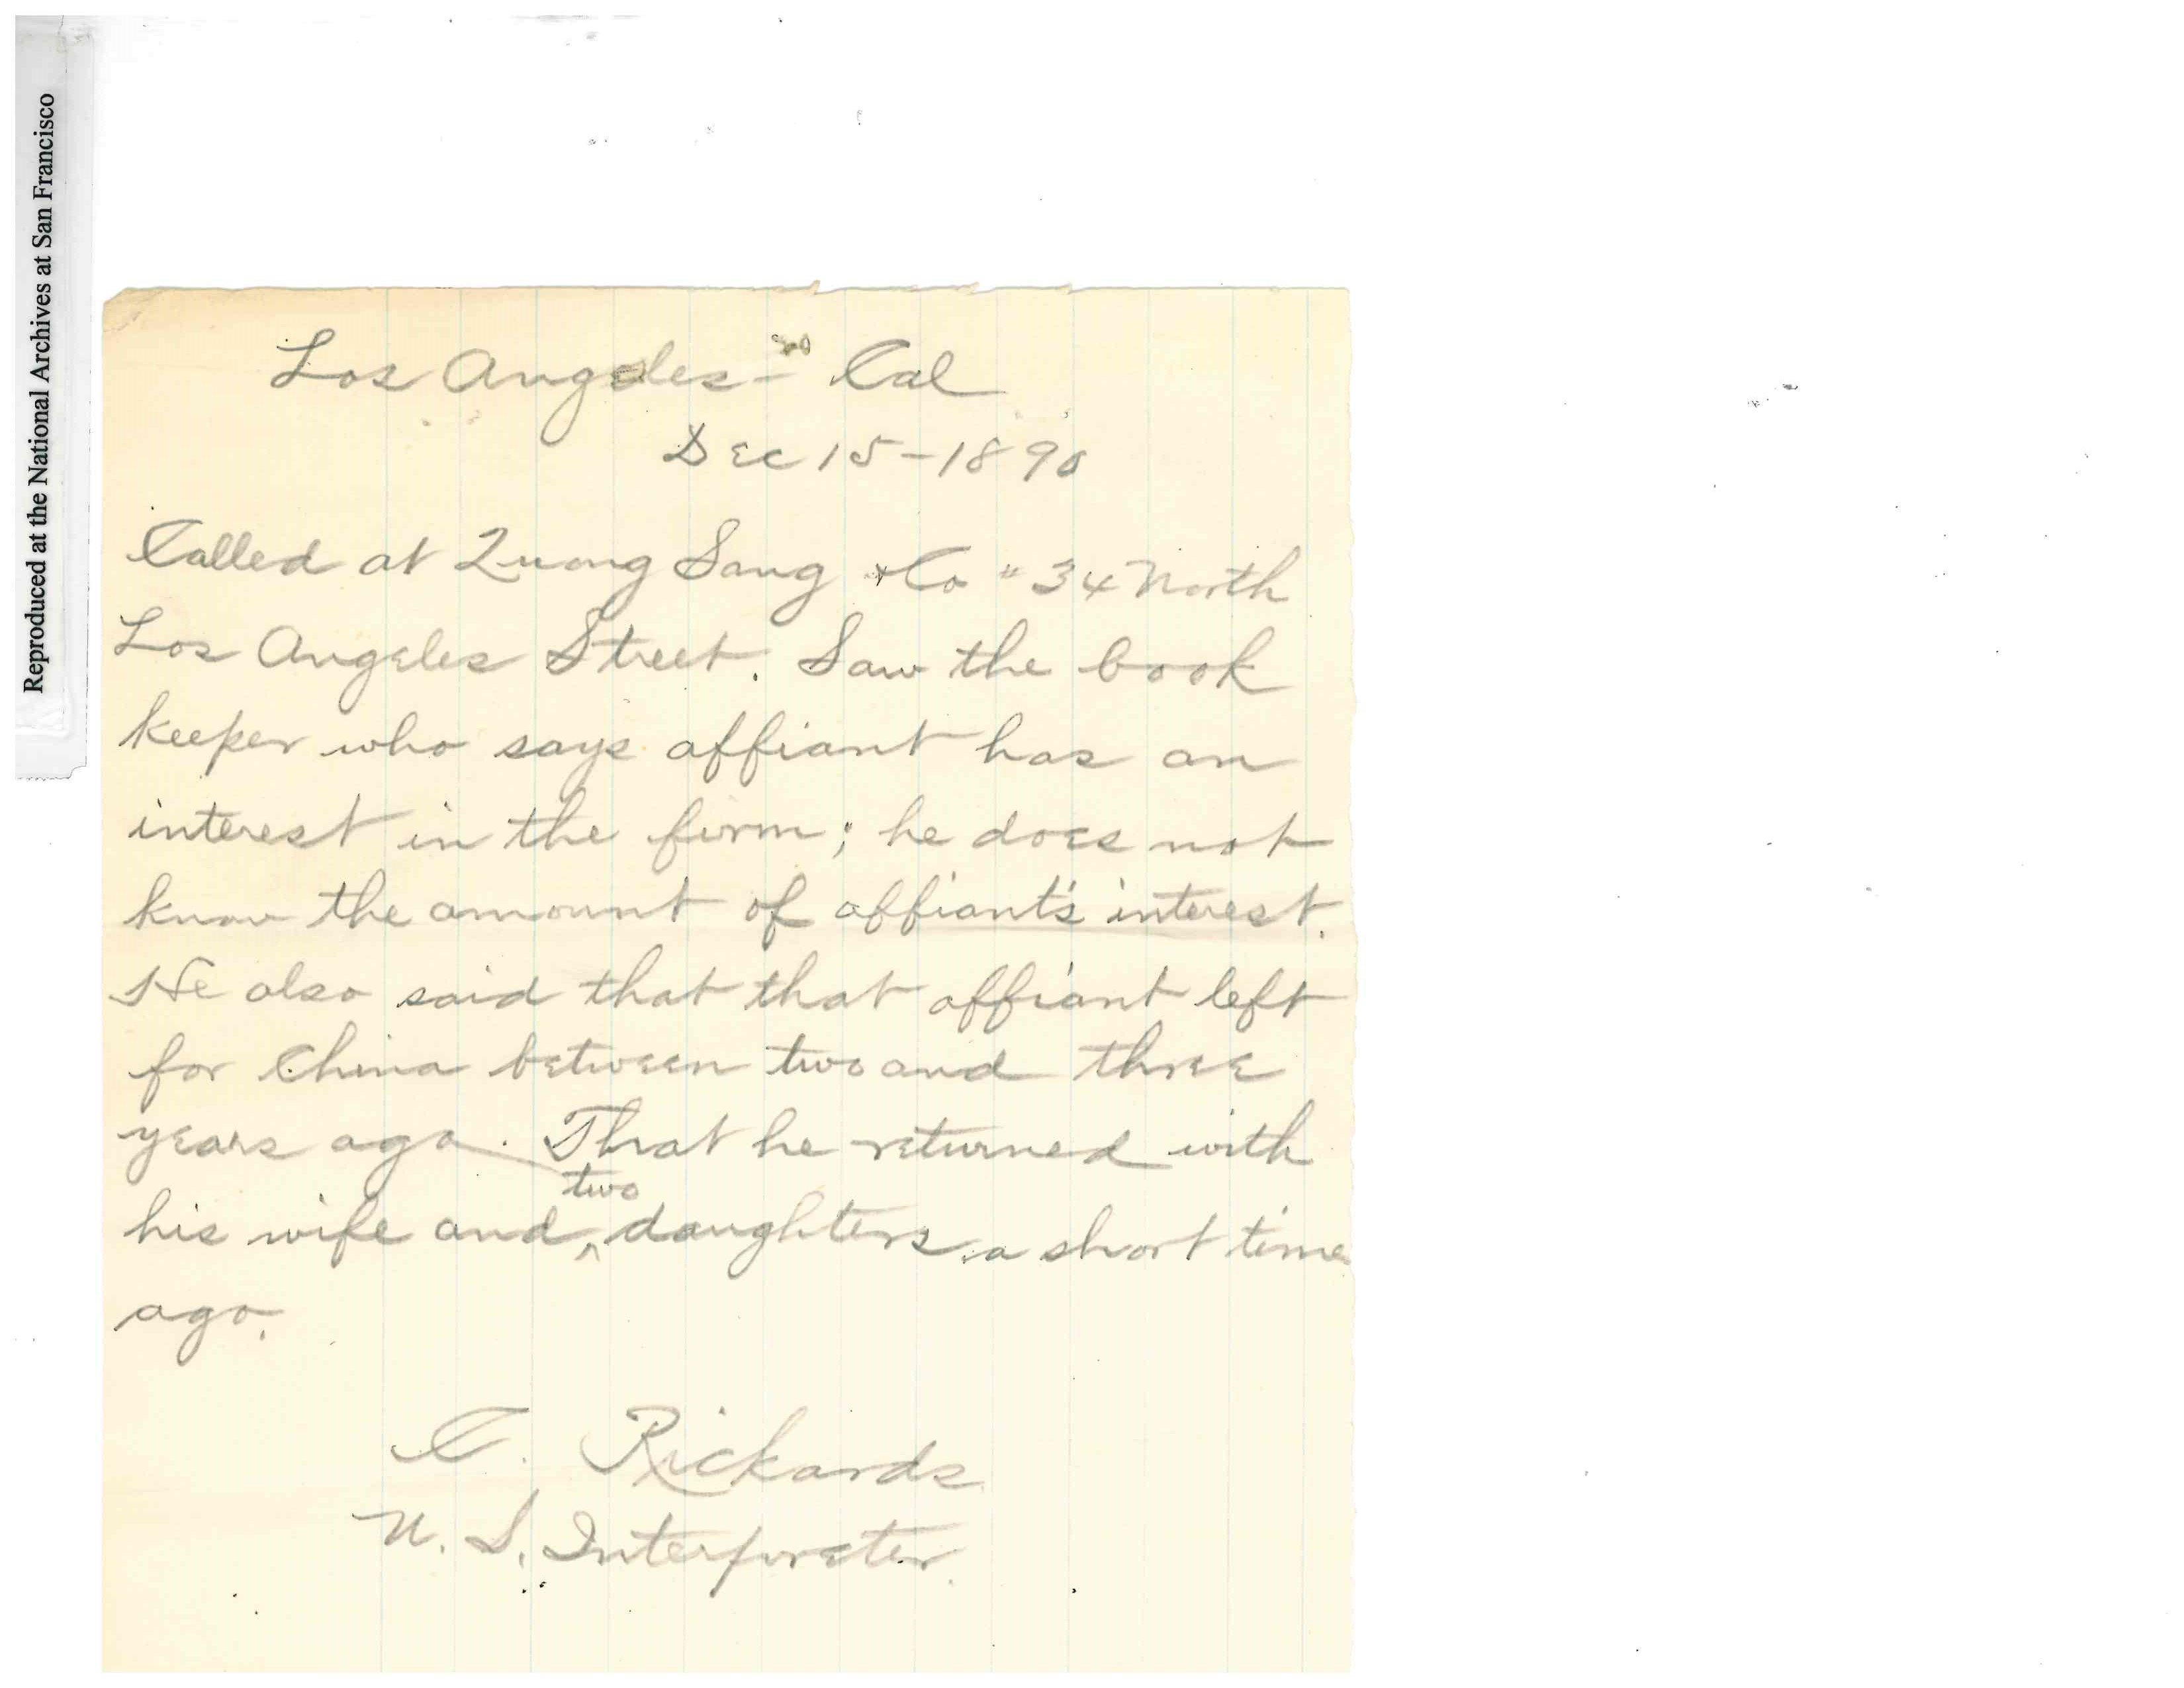 Reproduced at the National Archives at San Francisco
Los Angeles - Cal
Dec 15-1890
Called at Quong Sang & Co #34 North
Los Angeles Street. Saw the book
keeper who says affiant has an
interest in the firm; he does not
know the amount of affiant's interest.
He also said that that affiant left
for China between two and three
years ago. That he returned with
two
his wife and ^ daughters a short time
ago.
C. Rickards
U. S. Interpreter.